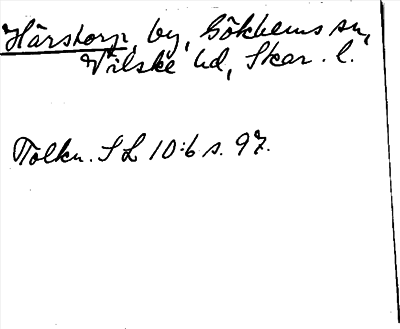 Härstorp, by, Gökhems sn,
Vilske hd, Skar. l.
Tolkn. SL 10:6 s. 97.